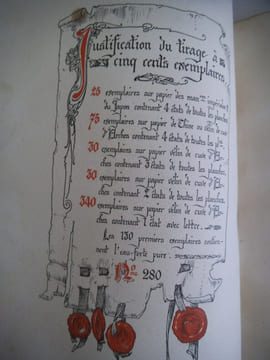 Justification du tirage à
cinq cents exemplaires
25 exemplaires sur papier des
du Japon contenant 4 états de toutes les planches
75 exemplaires sur papier de Chine ou vélin de cuve
d'Arches contenant 4 états de toutes les pl.
30 exemplaires sur papier vélin de cuve d'Ar-
ches contenant 3 états de toutes les planches
30 exemplaires sur papier vélin de cuve d'Ar-
ches contenant 2 états de toutes les planches
340 exemplaires sur papier vélin de cuve d'Ar-
ches contenant 1 état avec lettre.
Les 130 premiers exemplaires contien-
nent l'eau-forte pure.
No 280